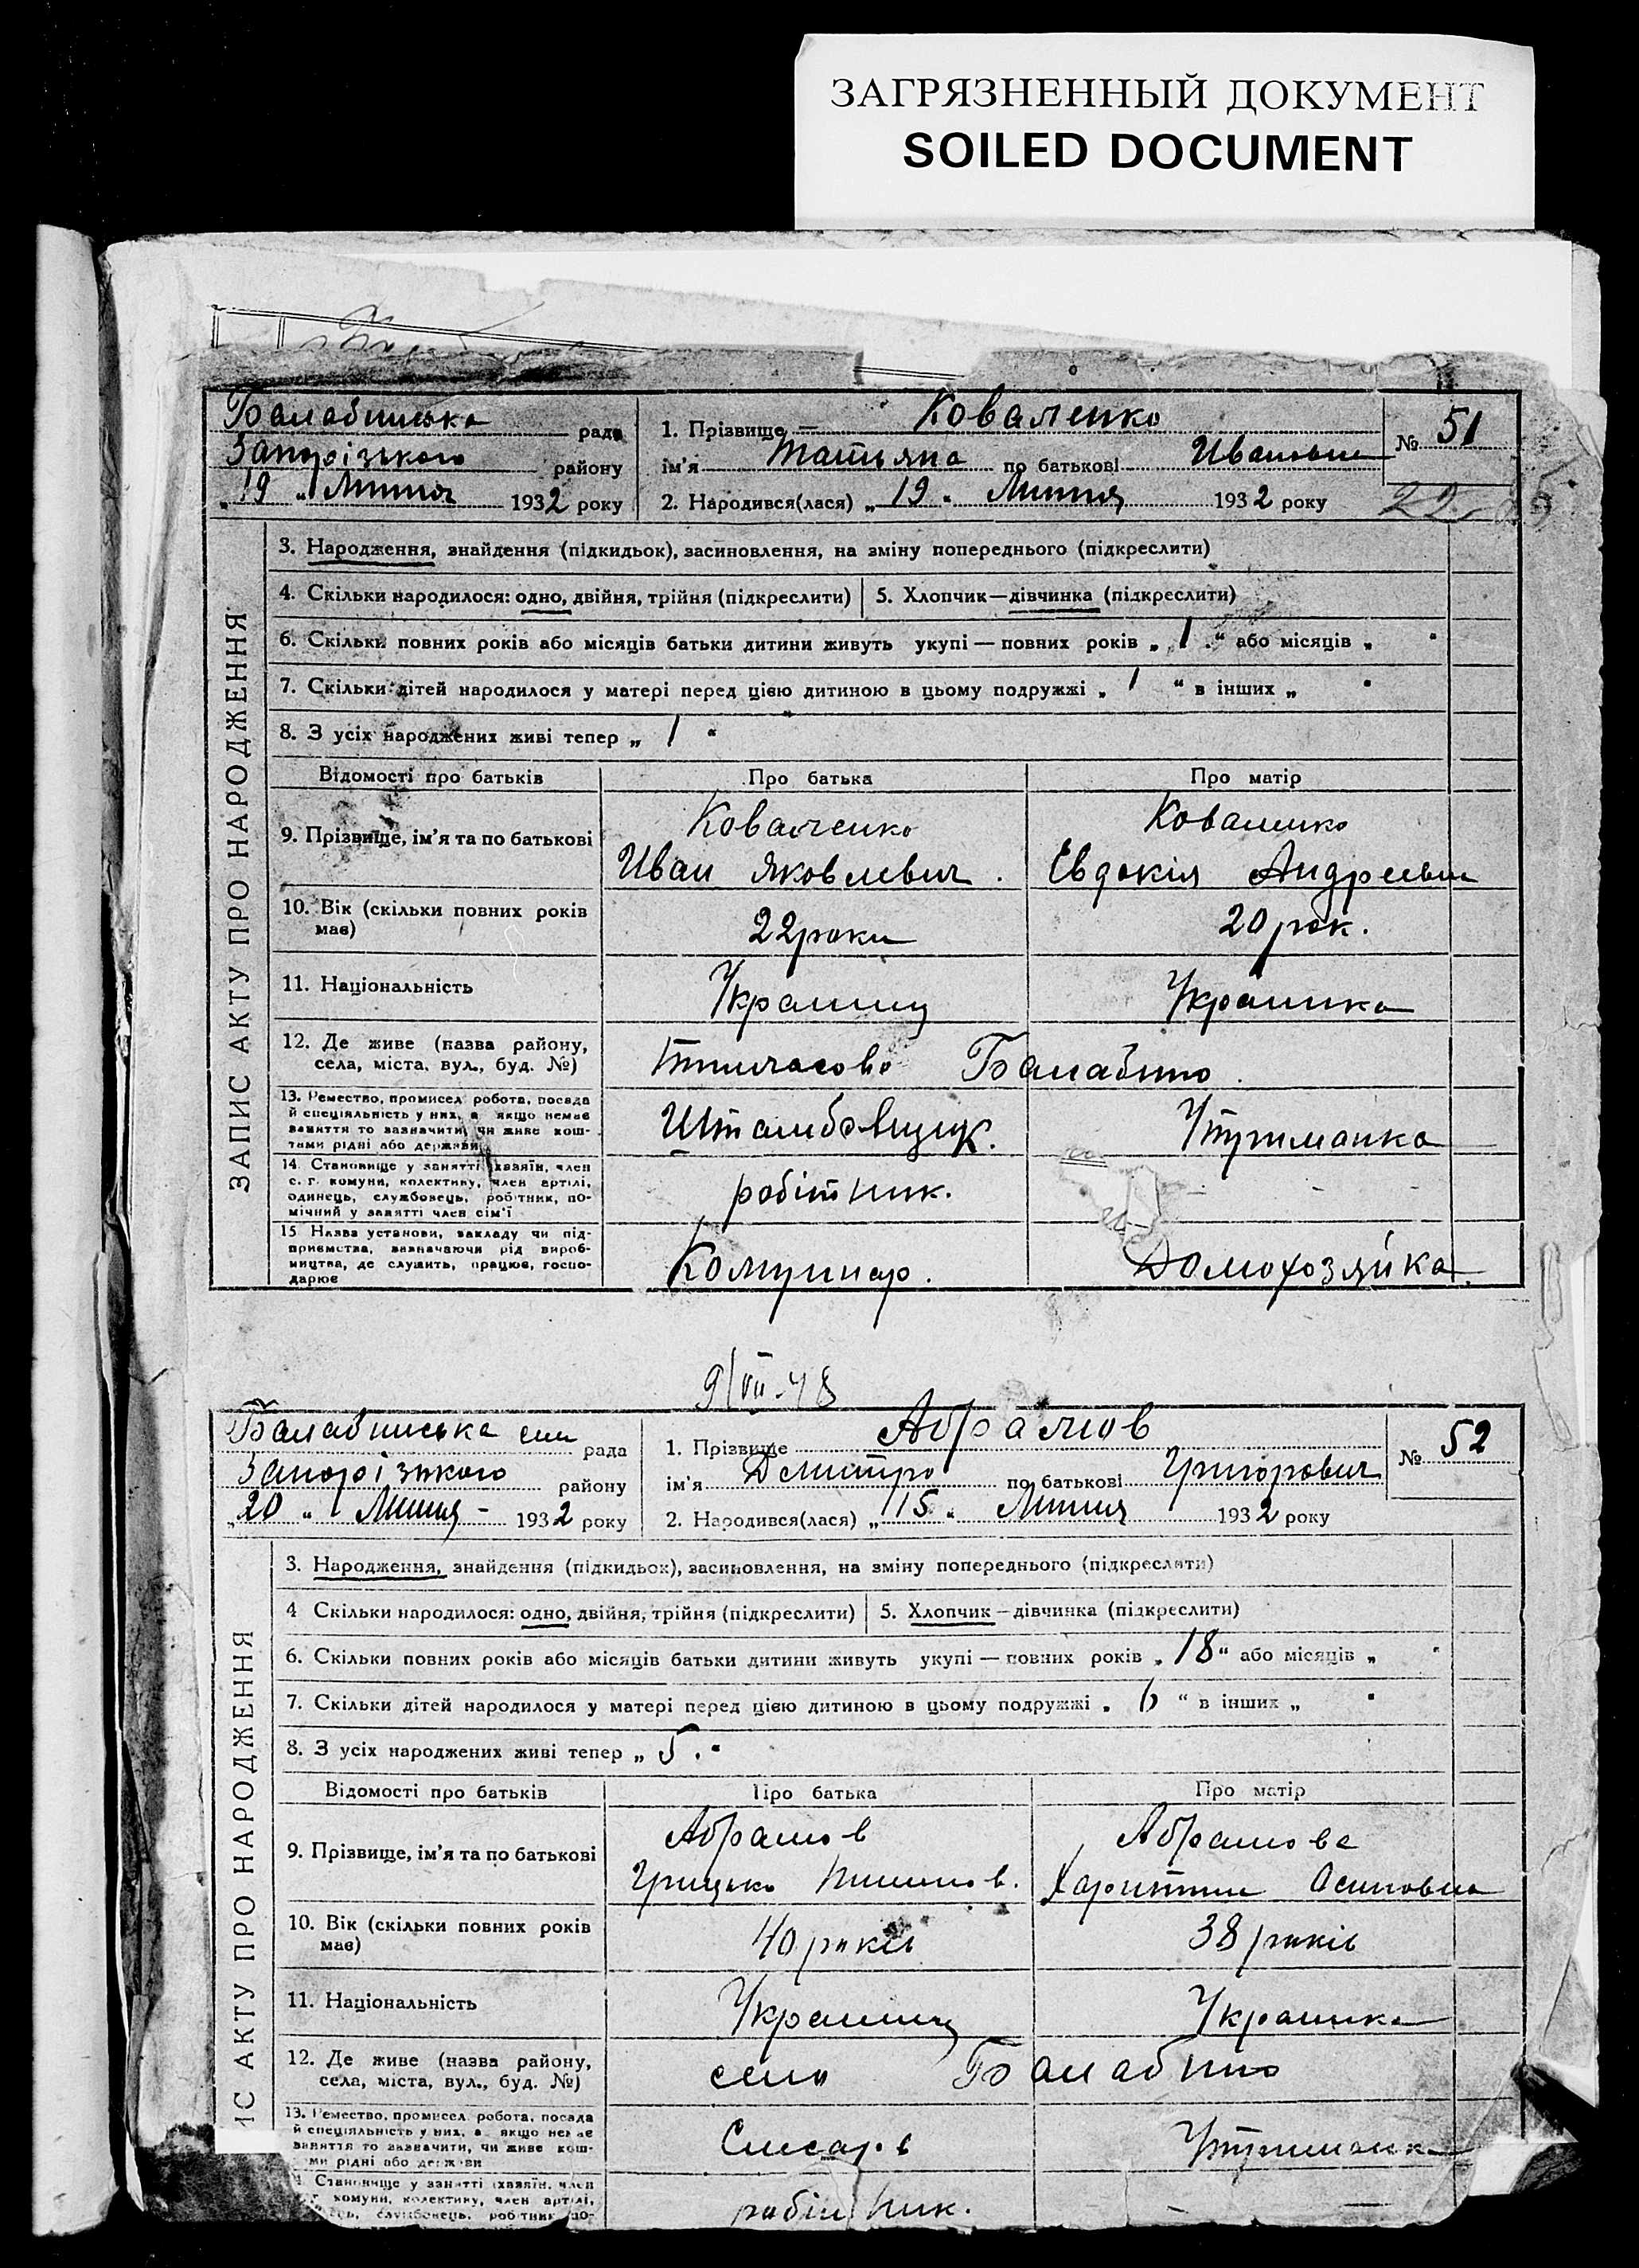 ЗАГРЯЗНЕННЫЙ ДОКУМЕНТ
SOILED DOCUMENT
Балабинська рада
Запорізького району
„19“ Липня 1932 року
1. Прізвище — Коваленко
ім'я Татьяна по батькові Ивановна
2. Народився(лася) „19“ Липня 1932 року
№ 51
ЗАПИС АКТУ ПРО НАРОДЖЕННЯ
3. Народження, знайдення (підкидьок), засиновлення, на зміну попереднього (підкреслити)
4. Скільки народилося: одно, двійня, трійня (підкреслити) 5. Хлопчик—дівчинка (підкреслити)
6. Скільки повних років або місяців батьки дитини живуть укупі — повних років „1“ або місяців „ “
7. Скільки дітей народилося у матері перед цією дитиною в цьому подружжі „1“ в інших „ “
8. З усіх народжених живі тепер „1“
Відомості про батьків Про батька Про матір
9. Прізвище, ім'я та по батькові
Коваленко
Иван Яковлевич.
Коваленко
Євдокія Андреевна
10. Вік (скільки повних років має)
22 роки
20 рок.
11. Національність
Украинец
Украинка
12. Де живе (назва району,
села, міста, вул., буд. №)
Тимчасово Балабино.
13. Ремество, промисел робота, посада
й спеціяльність у них, а якщо немає
заняття то зазначити, чи живе кош-
тами рідні або держави
Штамбовщик.
Утриманка
14. Становище у занятті (хазяїн, член
с. г. комуни, колективу, член артілі,
одинець, службовець, робітник, по-
мічний у занятті член сім'ї
робітник.
15 Назва установи, закладу чи під-
приємства, зазначаючи рід вироб-
ництва, де служить, працює, госпо-
дарює
Комунар.
Домохозяйка.
9/VII-48
Балабинська рада
Запорізького району
„20“ Липня 1932 року
1. Прізвище Абрамов
ім'я Дмитро по батькові Григорович
2. Народився(лася) „15“ Липня 1932 року
№ 52
ИС АКТУ ПРО НАРОДЖЕННЯ
3. Народження, знайдення (підкидьок), засиновлення, на зміну попереднього (підкреслити)
4 Скільки народилося: одно, двійня, трійня (підкреслити) 5. Хлопчик—дівчинка (підкреслити)
6. Скільки повних років або місяців батьки дитини живуть укупі — повних років „18“ або місяців „ “
7. Скільки дітей народилося у матері перед цією дитиною в цьому подружжі „6“ в інших „ “
8. З усіх народжених живі тепер „5.“
Відомості про батьків Про батька Про матір
9. Прізвище, ім'я та по батькові
Абрамов
Грицько
Абрамова
Харитина Осиповна
10. Вік (скільки повних років має)
40 років
38 років
11. Національність
Украинец
Украинка
12. Де живе (назва району,
села, міста, вул., буд. №)
село Балабино
13. Ремество, промисел робота, посада
й спеціяльність у них, а якщо немає
заняття то зазначити, чи живе кош-
ми рідні або держави
Слюсарь
Утриманка
Становище у занятті (хазяїн, член
г. комуни, колективу, член артілі,
службовець, робітник по-
робітник.